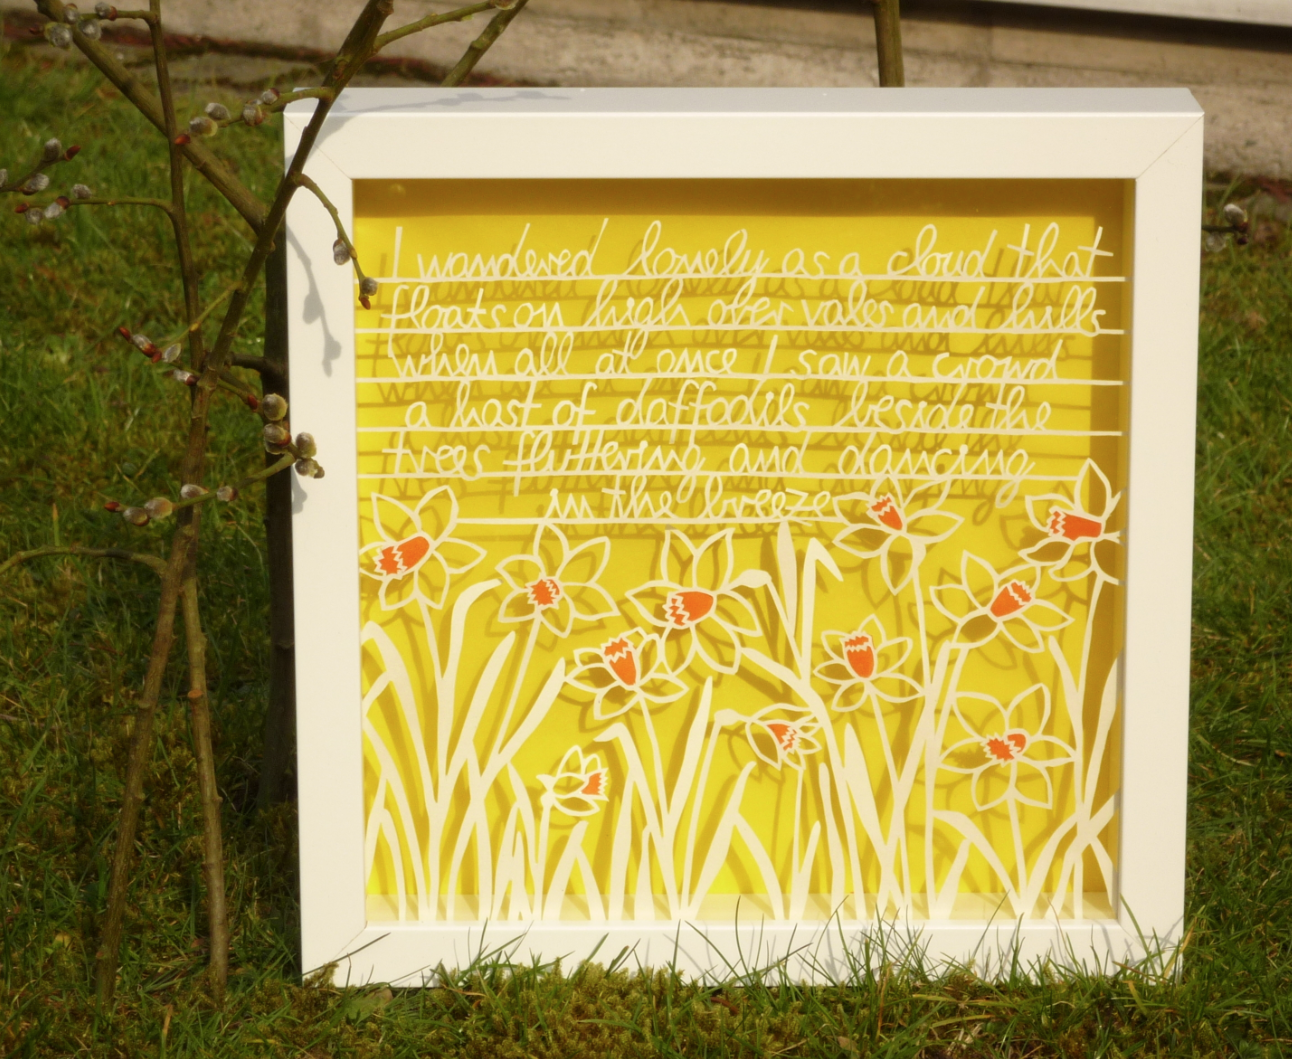 I wandered lonely as a cloud that
floats on high ober vales and hills
when all at once I saw a crowd
a host of daffodils beside the
trees fluttering and dancing
in the breeze